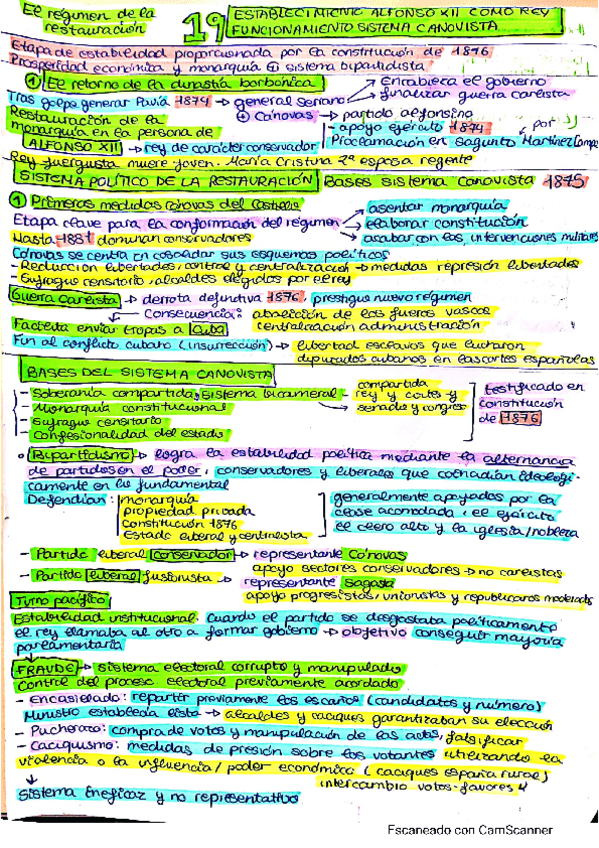 El régimen de la
restauración
19 ESTABLECIMIENTO ALFONSO XII COMO REY
FUNCIONAMIENTO SISTEMA CANOVISTA
Etapa de estabilidad proporcionada por la constitución de 1876
Prosperidad económica y monarquía + sistema bipartidista
① El retorno de la dinastía borbónica → Encabieza el gobierno
→ finalizar guerra carlista
Tras golpe general Pavía 1874 → general Serrano
Restauración de la + Cánovas → partido alfonsino
monarquía en la persona de - apoyo ejército 1874 por
ALFONSO XII → rey de carácter conservador Proclamación en Sagunto Martínez Campos
Rey juerguista muere joven. María Cristina 2ª esposa regente
SISTEMA POLÍTICO DE LA RESTAURACIÓN Bases sistema canovista 1875
① Primeras medidas Cánovas del Castillo → asentar monarquía
Etapa clave para la conformación del régimen → elaborar constitución
Hasta 1881 dominan conservadores → acabar con las intervenciones militares
Cánovas se centra en consolidar sus esquemas políticos
- Reducción libertades, control y centralización → medidas represión libertades
- Sufragio censitario, alcaldes elegidos por el rey
Guerra carlista → derrota definitiva 1876, prestigia nuevo régimen
→ Consecuencia: abolición de los fueros vascos
Facilita enviar tropas a Cuba centralización administración
Fin al conflicto cubano (insurrección) → libertad esclavos que lucharon
diputados cubanos en las cortes españolas
BASES DEL SISTEMA CANOVISTA
- Soberanía compartida, sistema bicameral - compartida rey y cortes y senado y congreso
- Monarquía constitucional
- Sufragio censitario
- Confesionalidad del estado
testificado en
constitución
de 1876
Bipartidismo → logra la estabilidad política mediante la alternancia
de partidos en el poder, conservadores y liberales que coincidían ideológi-
camente en lo fundamental
Defendían: monarquía
propiedad privada
constitución 1876
Estado liberal y centralista
generalmente apoyados por la
clase acomodada, el ejército
el clero alto y la iglesia/nobleza
- Partido liberal conservador → representante Cánovas
apoyo sectores conservadores → no carlistas
- Partido liberal fusionista → representante Sagasta
apoyo progresistas/unionistas y republicanos moderados
Turno pacífico
Estabilidad institucional. Cuando el partido se desgastaba políticamente
el rey llamaba al otro a formar gobierno → objetivo conseguir mayoría
parlamentaria
FRAUDE → sistema electoral corrupto y manipulado
Control del proceso electoral previamente acordado
- Encasillado: repartir previamente los escaños (candidatos y número)
Ministro establecía lista → alcaldes y caciques garantizaban su elección
- Pucherazo: compra de votos y manipulación de las actas, falsificar
- Caciquismo: medidas de presión sobre los votantes utilizando la
violencia o la influencia/poder económico (caciques españa rural)
intercambio votos-favores
Sistema Ineficaz y no representativo
Escaneado con CamScanner